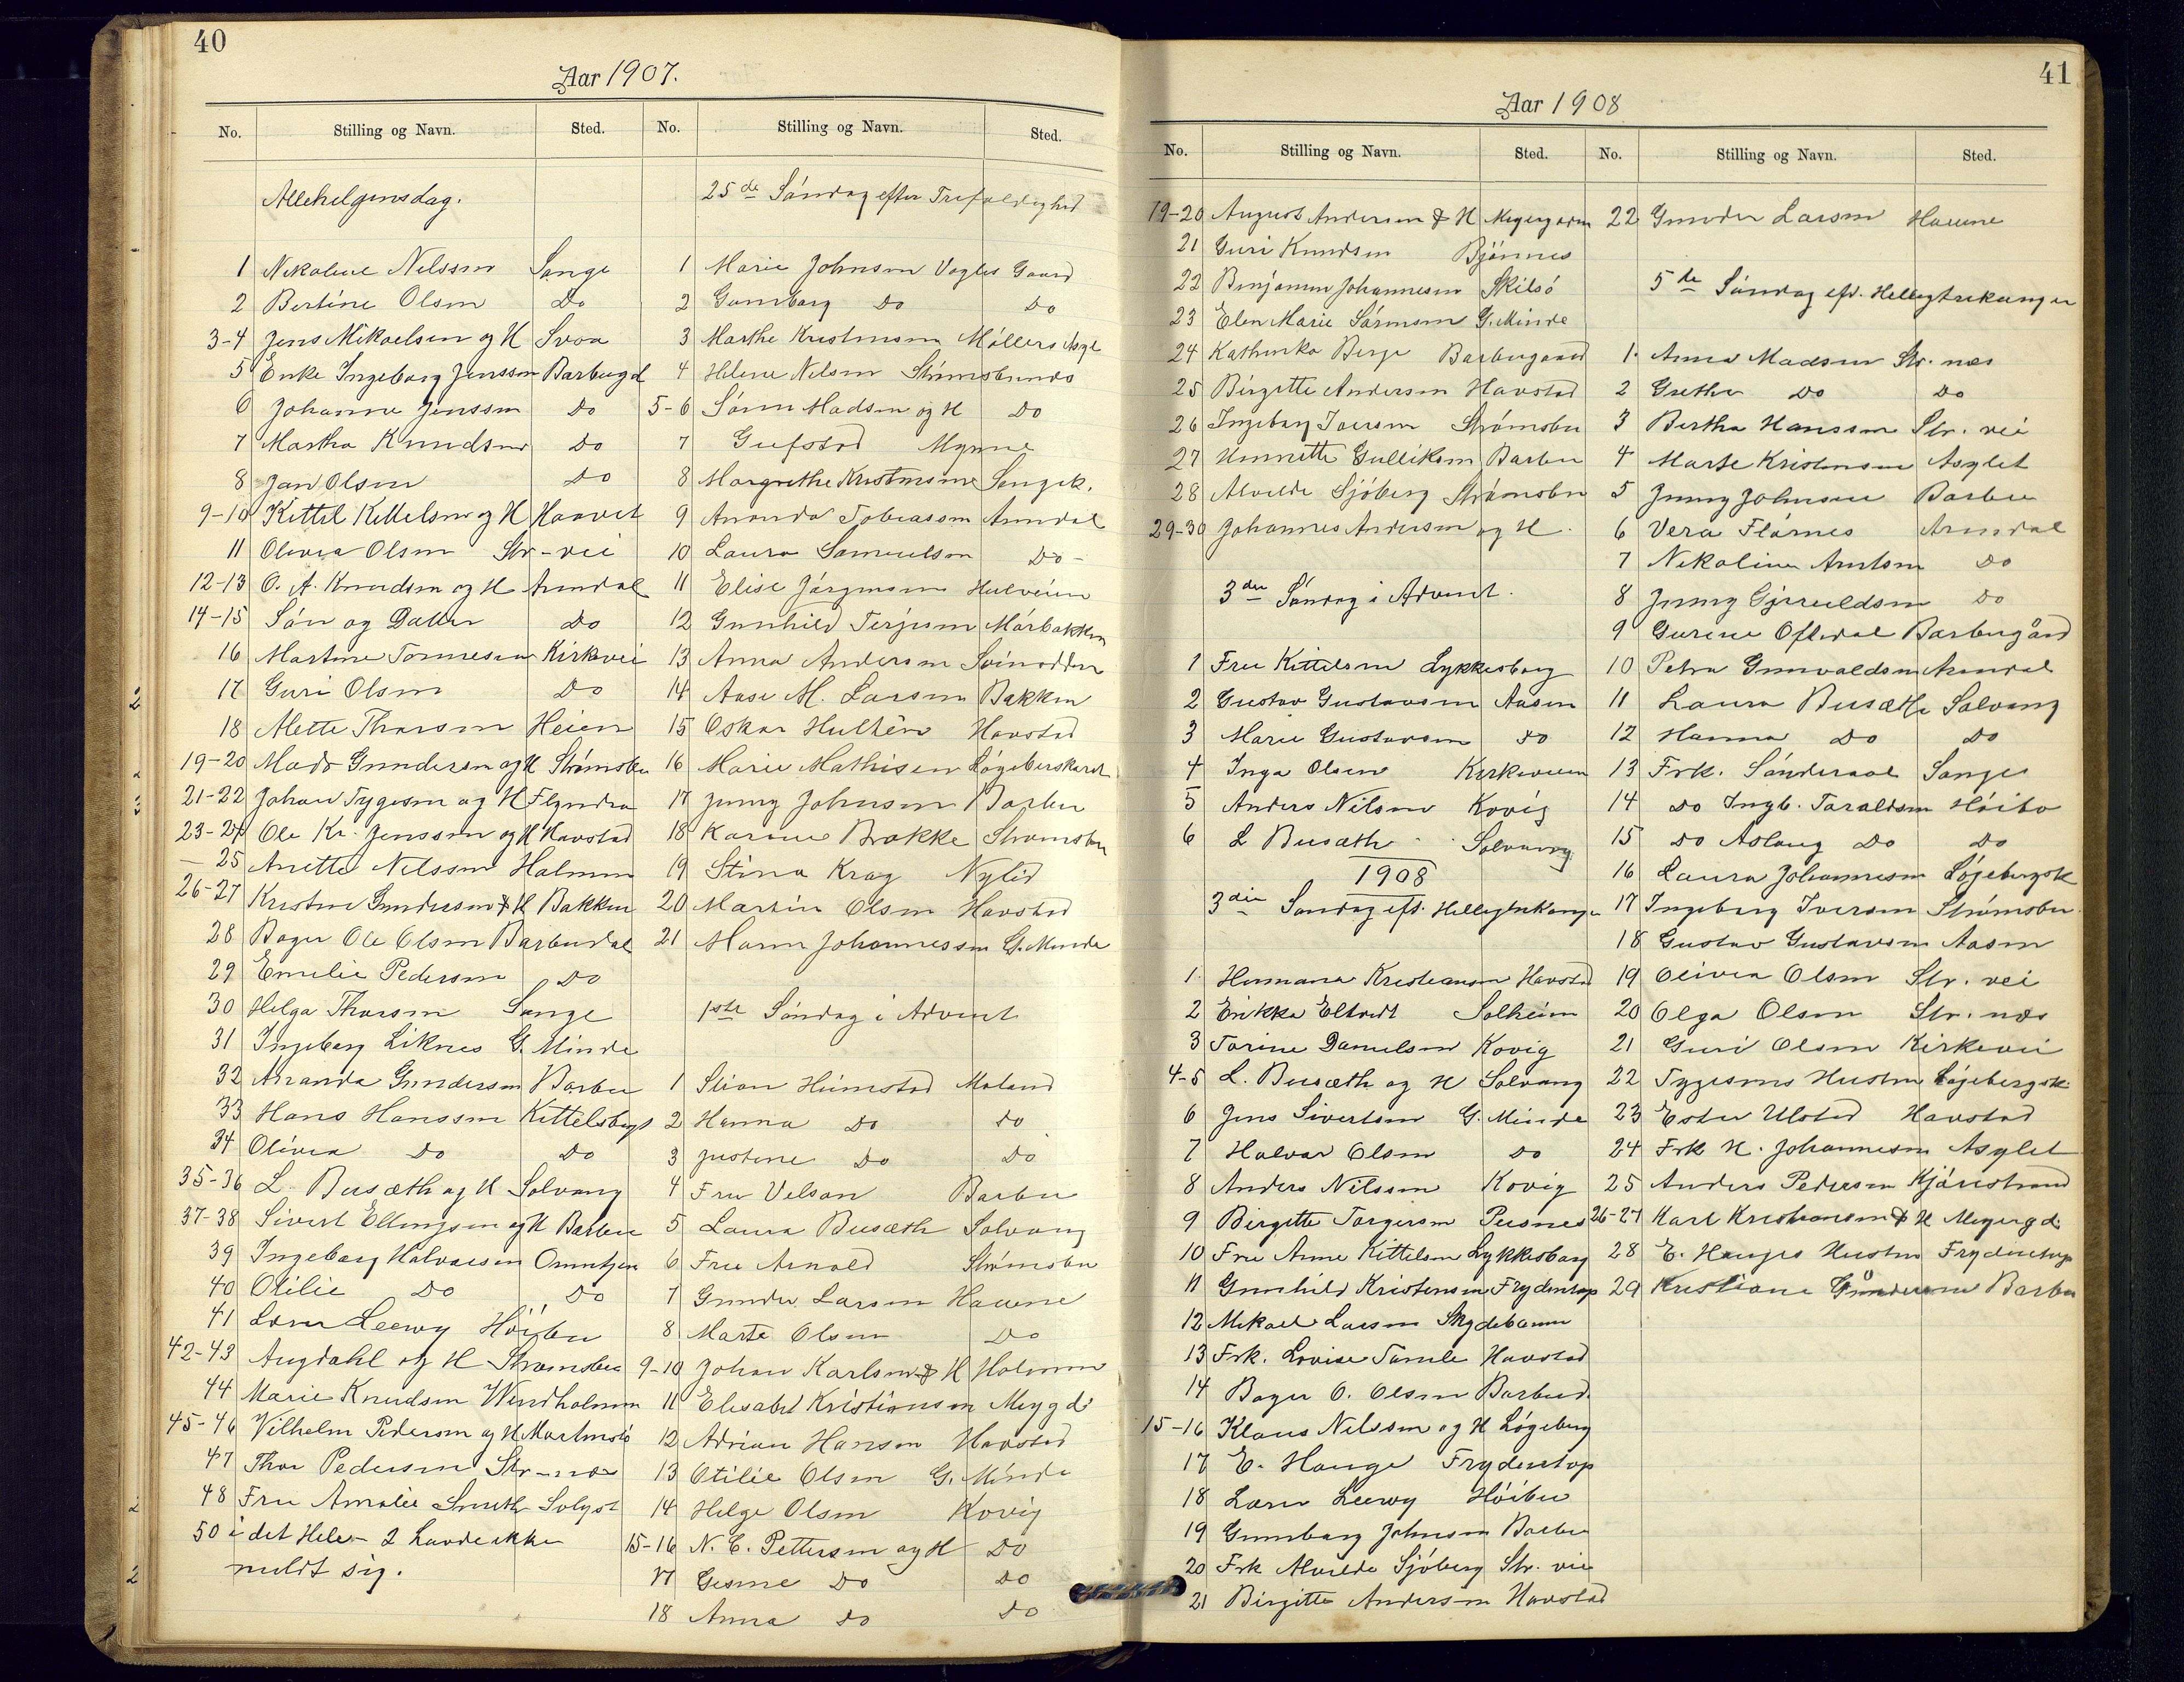 40
Aar 1907.
No. Stilling og Navn. Sted.
Allehelgensdag.
1 Nikoline Nilssen Songe
2 Bertine Olsen Do
3-4 Jens Mikaelsen og H Svoa
5 Enke Ingeborg Jenssen Barbugd
6 Johanne Jenssen Do
7 Martha Knudsen Do
8 Jan Olsen Do
9-10 Kittil Kittelsen og H Haavet
11 Olivia Olsen Str-vei
12-13 O. A. Knudsen og H Arendal
14-15 Sön og Datter Do
16 Martine Tønnesen Kirkevei
17 Guri Olsen Do
18 Mette Thorsen Heien
19-20 Mads Gundersen og H Strømsbu
21-22 Johan Tygesen og H Flyndra
23-24 Ole Kr. Jenssen og H Havstad
25 Anette Nelssen Holmen
26-27 Kristine Gundersen & H Bakken
28 Bager Ole Olsen Barbudal
29 Emilie Pedersen Do
30 Helga Thorsen Songe
31 Ingeborg Liknes G. Minde
32 Amanda Gundersen Barbu
33 Hans Hanssen Kittelsbugt
34 Olivia Do Do
35-36 L. Busæth og H Solvang
37-38 Sivert Ellingsen og H Barbu
39 Ingeborg Halvorsen
40 Otilie Do Do
41 Leervy Höibu
42-43 Augdahl og H Strømsbu
44 Marie Knudsen Windholmen
45-46 Vilhelm Pedersen og H
47 Thor Pedersen Str-næs
48 Fru Amalie Smith Solyst
50 i det Hele - 2 havde ikke
meldt sig.
No. Stilling og Navn. Sted.
25de Söndag efter Trefoldighed
1 Marie Johnsen Vogles Gaard
2 Gunborg Do Do
3 Marthe Kristensen Möllers Asyl
4 Helene Nelsen Strømsbunds
5-6 Sörin Madsen og H Do
7 Gufstad Myrene
8 Margrethe Kristensen Songek.
9 Amanda Tobiassen Arendal
10 Laura Samuelsen Do-
11 Elise Jörgensen Hulveien
12 Gunhild Terjesen Mörbakken
13 Anna Andersen Svinodden
14 Aase M. Larsen Bakken
15 Oskar Hultén Havstad
16 Marie Mathisen
17 Jenny Johnsen Barbu
18 Karine Brække Strømsbu
19 Stina Krag Nylid
20 Martin Olsen Havstad
21 Maren Johannessen G. Minde
1ste Söndag i Advent
1 Stian Heimstad Moland
2 Hanna Do Do
3 Justine Do Do
4 Fru Velson Barbu
5 Laura Busæth Solvang
6 Fru Arnold Strømsbu
7 Gunder Larsen Havene
8 Marte Olsen Do
9-10 Johan Karlsen & H Holmen
11 Elisabet Kristiansen Meygd.
12 Adrian Hansen Havstad
13 Otilie Olsen G. Minde
14 Helge Olsen Kovig
15-16 N. C. Pettersen og H Do
17 Gesine Do Do
18 Anna Do Do
41
Aar 1908
No. Stilling og Navn. Sted.
19-20 August Andersen & H Meyergaarden
21 Guri Knudsen Bjönnes
22 Benjamin Johannesen Skilsö
23 Elen Marie Sörensen G. Minde
24 Kathinka Berge Barbugaard
25 Birgitte Andersen Havstad
26 Ingeborg Iversen Strømsbu
27 Henriette Gulliksen Barbu
28 Alvilde Sjöberg Strømsbu
29-30 Johannes Andersen og H.
3die Söndag i Advent.
1 Fru Kittelsen Lykkesborg
2 Gustav Gustavsen Aasen
3 Marie Gustavsen Do
4 Inga Olsen Kirkeveien
5 Anders Nilsen Kovig
6 L Busæth Solvang
1908
3die Söndag eft. Helligtrekonger
1. Hermana Kristiansen Havstad
2 Erikka Eltvedt Solheim
3 Torine Danielsen Kovig
4-5 L. Busæth og H Solvang
6 Jens Sivertsen G. Minde
7 Halvor Olsen Do
8 Anders Nilssen Kovig
9 Birgitte Torgersen Pusnes
10 Fru Anne Kittelsen Lykkesborg
11 Gunhild Kristensen Frydentop
12 Mikael Larsen Skydebanen
13 Frk. Lovise Tamle Havstad
14 Bager O. Olsen Barbud.
15-16 Klaus Nilssen og H Lögeberg
17 E. Hauge Frydentop
18 Leervy Höibu
19 Gunborg Johnsen Barbu
20 Frk Alvilde Sjöberg Str. vie
21 Birgitte Andersen Havstad
No. Stilling og Navn. Sted.
22 Gunder Larsen Havene
5te Söndag eft. Helligtrekonger
1. Anna Madsen Str. næs
2 Grethe Do Do
3 Bertha Hanssen Str. vei
4 Marte Kristensen Asylet
5 Jenny Johnsen Barbu
6 Vera Flörnes Arendal
7 Nikoline Arntsen Do
8 Jenny Gjeruldsen Do
9 Gurine Oftedal Barbugård
10 Petra Gunvaldsen Arendal
11 Laura Busæth Solvang
12 Hanna Do Do
13 Frk. Sönderaal Songe
14 Do Ingb. Taraldsen Höibo
15 Do Aslaug Do Do
16 Laura Johannesen Löjebergsk
17 Ingeborg Iversen Strømsbu
18 Gustav Gustavsen Aasen
19 Olivia Olsen Str. vei
20 Olga Olsen Str. næs
21 Guri Olsen Kirkevei
22 Tygesens Hustru Löjebergsk.
23 Ester Ulsted Havstad
24 Frk H. Johannesen Asylet
25 Anders Pedersen Kjörrestrand
26-27 Karl Kristiansen & H Meyergd.
28 E. Hauges Hustru Frydentop
29 Kristiane Gundersen Barbu